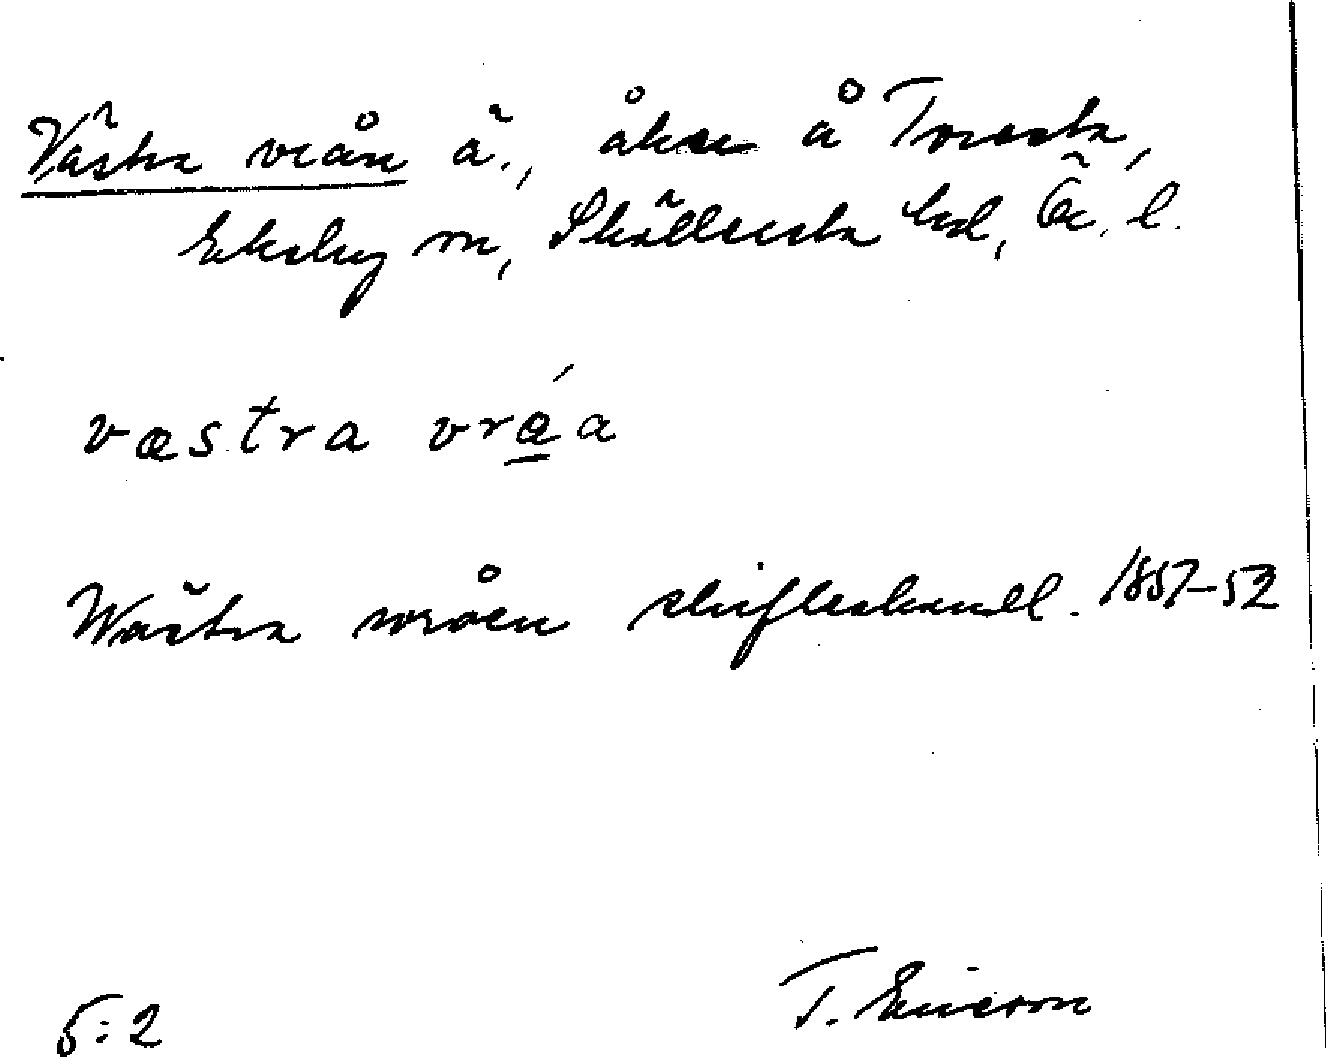 Västra vrån ä., åker å Torsta,
Ekeby sn, Sköllersta hd, Ö. l.
væstra vrá̱a
Wästra wråen skifteshandl. 1851-52
5:2
T. Ericson